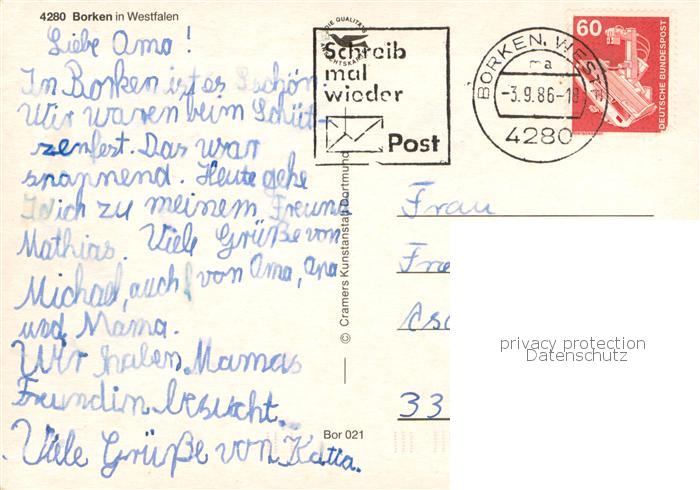 4280 Borken in Westfalen
Liebe Oma!
In Borken ist es schön
Wir waren beim Schüt-
zenfest. Das war
spannend. Heute gehe
ich zu meinem Freund
Mathias. Viele Grüße von
Michael, auch von Oma, Opa
und Mama.
Wir haben Mamas
Freundin besucht.
Viele Grüße von Katta.
© Cramers Kunstanstalt Dortmund
Bor 021
Schreib
mal
wieder
Post
BORKEN, WESTF
ma
-3.9.86-18
4280
60
DEUTSCHE BUNDESPOST
Frau
33
privacy protection
Datenschutz